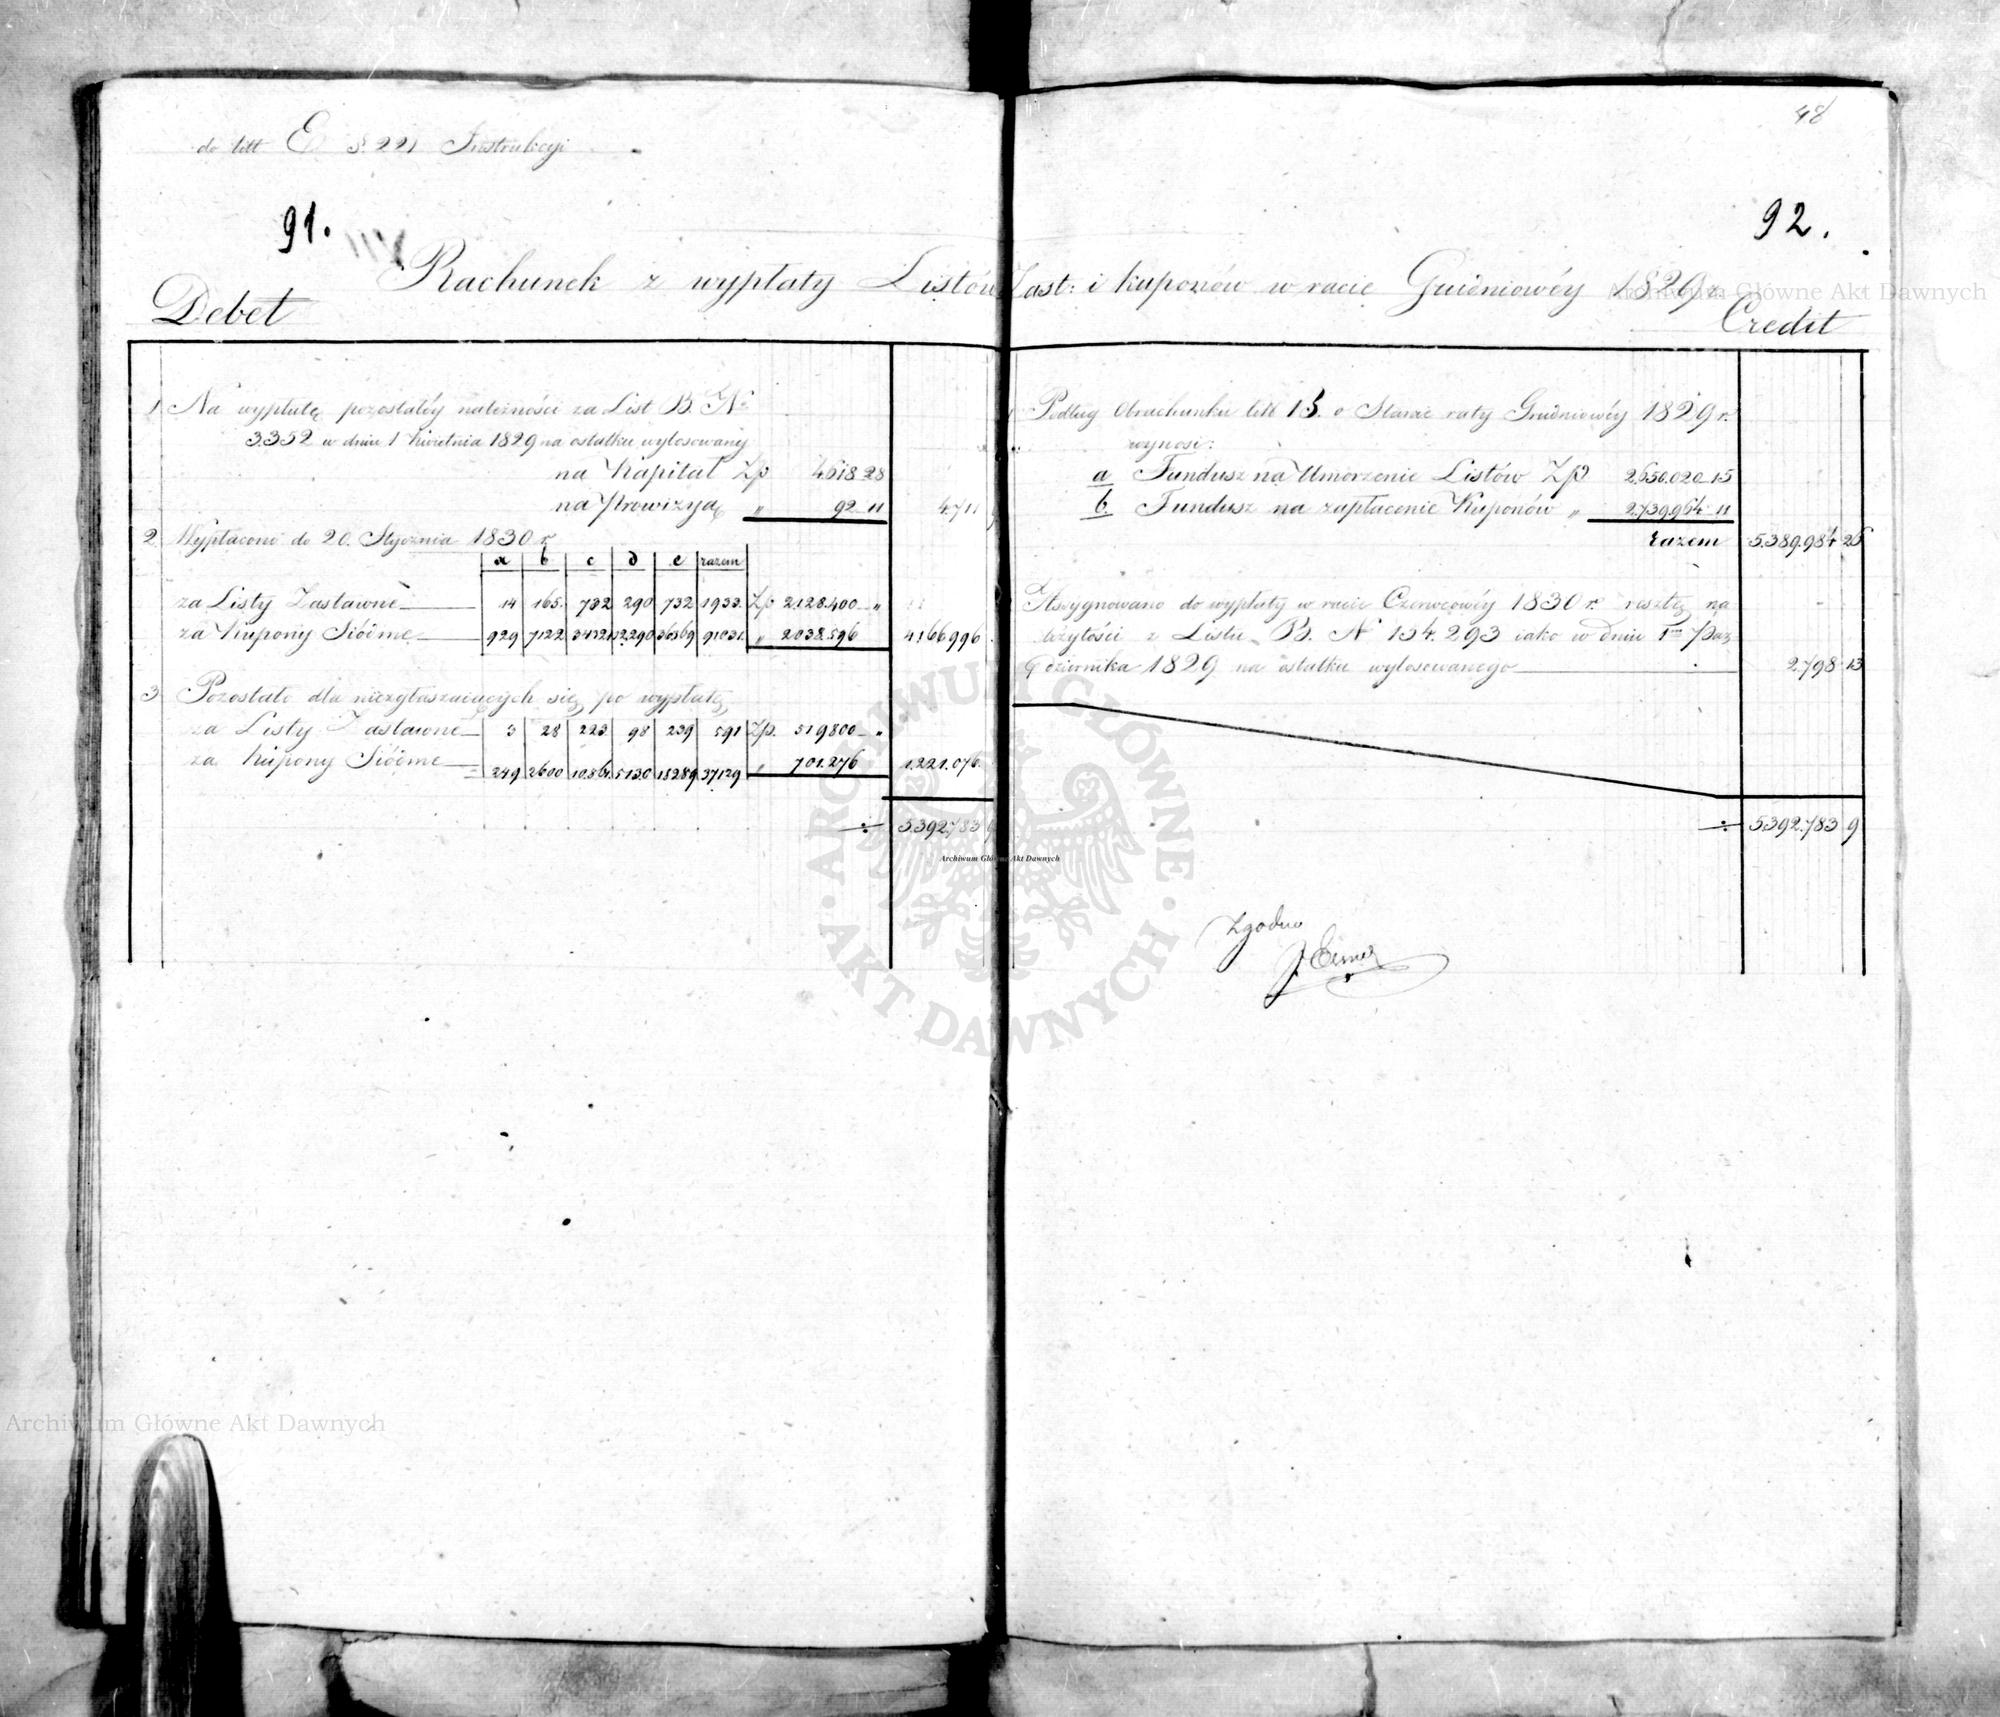 48
do litt E § 221 Instrukcyi
91.
92.
VII
Rachunek z wypłaty Listów Zast: i kuponów w racie Grudniowéy 1829 r.
Debet
Credit
1 Na wypłatę pozostałéy należności za List B. No
3.352 w dniu 1 Kwietnia 1829 na ostatku wylosowany
na Kapitał Zp 4618 28
na Prowizyą „ 92 11 4.711 9
2 Wypłacono do 20. Stycznia 1830 r
a b c d e razem
za Listy Zastawne 14 165. 732 290 732 1933. Zp 2.128.400 „
za Kupony Siódme 929 7122 34121 12.290 36569 91031. „ 2.038.596 4.166.996
3 Pozostało dla niezgłaszaiących się po wypłatę
za Listy Zastawne 3 28 223 98 239 591 Zp. 519800 „
za Kupony Siódme 249 2600 10.861 5130 18289 37129 „ 701.276 1.221.076.
÷ 5.392.783 9
1 Podług Obrachunku litt B. o Stanie raty Grudniowéy 1829 r.
wynosi:
a Fundusz na Umorzenie Listów Zp 2.650.020 15
b. Fundusz na zapłacenie Kuponów „ 2.739.964 11
razem 5.389.984 26
Asygnowano do wypłaty w racie Czerwcowéy 1830 r. resztę na
leżytości z Listu B. No 134.293 iako w dniu 1m Paź
dziernika 1829 na ostatku wylosowanego 2.798 13
÷ 5.392.783 9
Zgodno
Archiwum Główne Akt Dawnych
Archiwum Główne Akt Dawnych
Archiwum Główne Akt Dawnych
ARCHIWUM GŁÓWNE AKT DAWNYCH